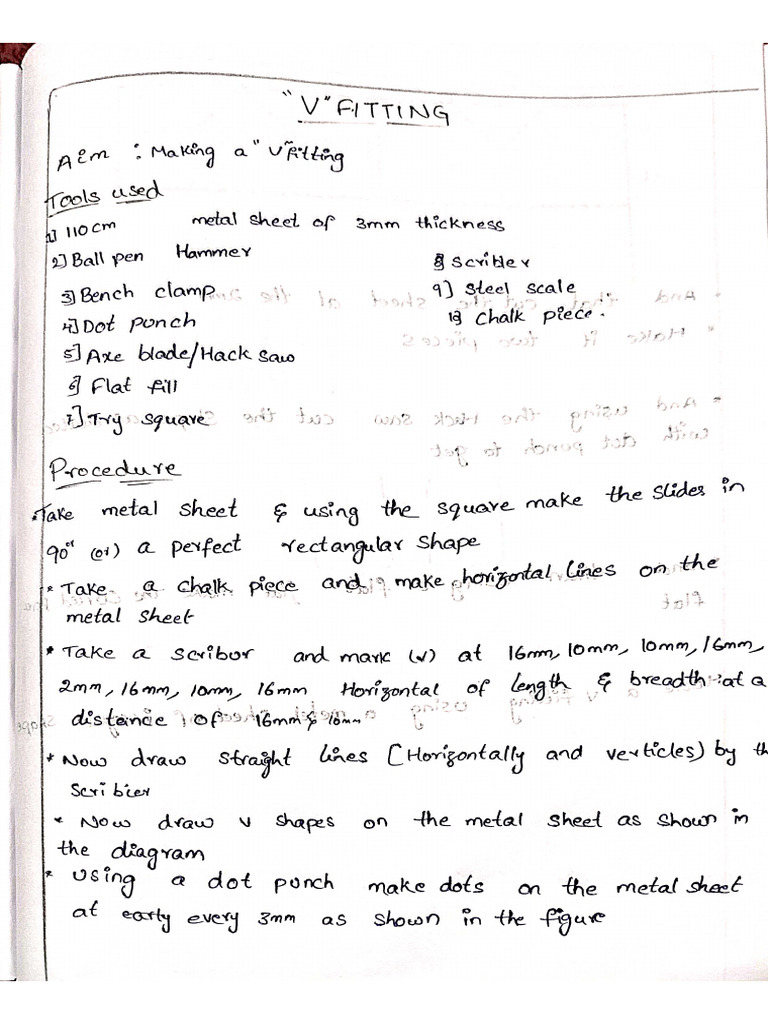 "V" FITTING
Aim : Making a "V" fitting
Tools used
1] 110cm metal sheet of 3mm thickness
2] Ball pen Hammer
3] Bench clamp
4] Dot punch
5] Axe blade/Hack saw
6] Flat fill
7] Try square
8] Scriber
9] Steel scale
10] Chalk piece.
Procedure
Take metal sheet & using the square make the slides in
90° (or) a perfect rectangular shape
* Take a chalk piece and make horizontal lines on the
metal sheet
* Take a scribor and mark (v) at 16mm, 10mm, 10mm, 16mm,
2mm, 16mm, 10mm, 16mm Horizontal of length & breadth at a
distance of 16mm & 16mm
* Now draw straight lines (Horizontally and verticles) by th
Scriber
* Now draw v shapes on the metal sheet as shown in
the diagram
* Using a dot punch make dots on the metal sheet
at early every 3mm as shown in the figure